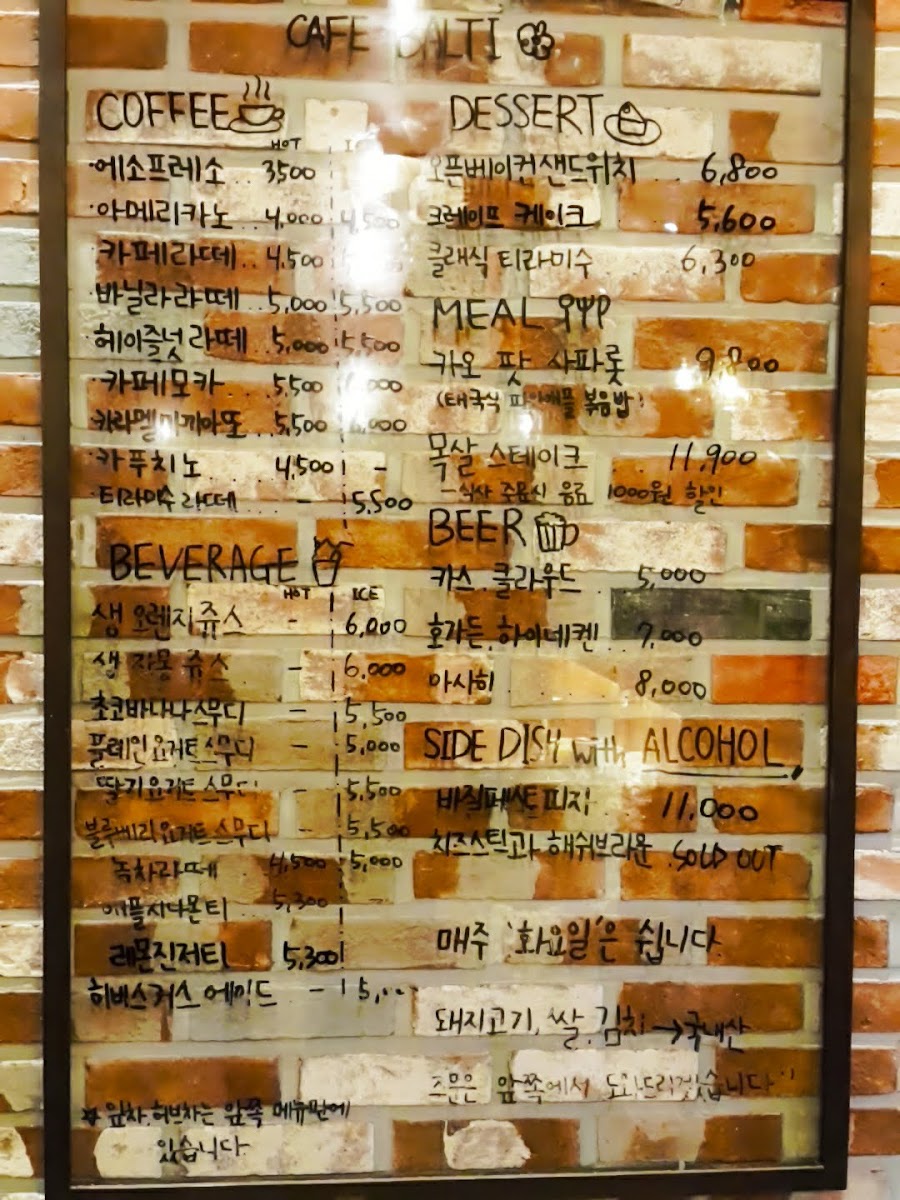 CAFE BALTI
COFFEE
HOT
에소프레소 .. 3,500
아메리카노 .. 4,000 4,500
카페라떼 .. 4,500
바닐라라떼 .. 5,000 5,500
헤이즐넛 라떼 .. 5,000 5,500
카페모카 .. 5,500
카라멜마끼아또 .. 5,500
카푸치노 4,500 -
티라미수라떼 - 5,500
BEVERAGE
HOT ICE
생 오렌지쥬스 - 6,000
생 자몽 쥬스 - 6,000
초코바나나스무디 - 5,500
플레인요거트스무디 - 5,000
딸기요거트스무디 - 5,500
블루베리요거트스무디 - 5,500
녹차라떼 4,500 5,000
애플시나몬티 5,300 -
레몬진저티 5,300
히비스커스 에이드 -
* 잎차, 허브차는 앞쪽 메뉴판에
있습니다
DESSERT
오픈베이컨샌드위치 ... 6,800
크레이프 케이크 5,600
클래식 티라미수 6,300
MEAL
카오 팟 사파롯 9,800
(태국식 파인애플 볶음밥)
목살 스테이크 .. 11,900
- 식사 주문시 음료 1000원 할인
BEER
카스. 클라우드 .. 5,000
호가든. 하이네켄 .. 7,000
아사히 .... 8,000
SIDE DISH with ALCOHOL
바질페스토피자 11,000
치즈스틱과 해쉬브라운 SOLD OUT
매주 '화요일'은 쉽니다
돼지고기, 쌀, 김치 → 국내산
주문은 앞쪽에서 도와드리겠습니다^^